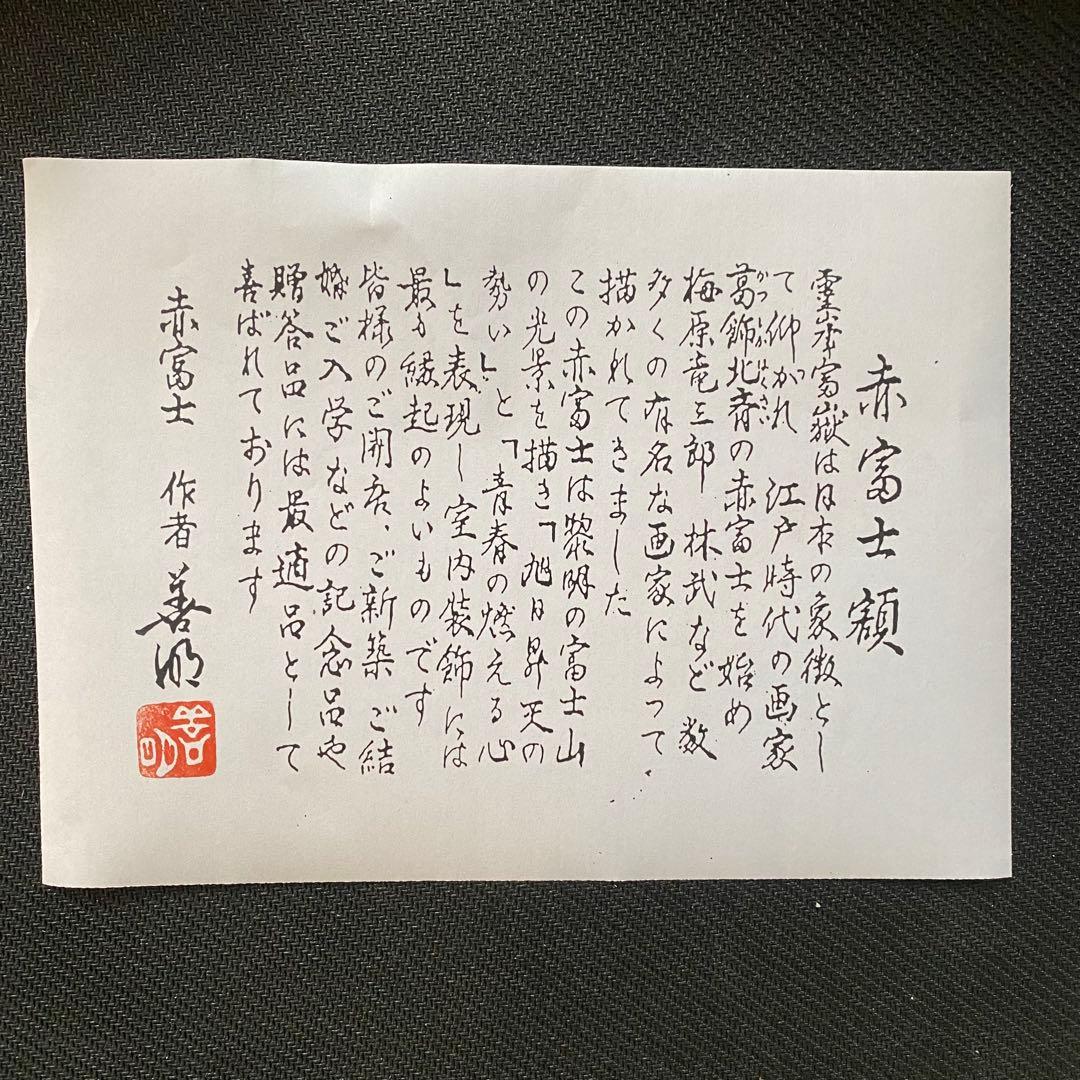 赤富士額
霊峯富嶽は日本の象徴とし
て仰がれ 江戸時代の画家
葛飾北斉の赤富士を始め
かつしかほくさい
梅原竜三郎 林武など 数
多くの有名な画家によって
描かれてきました
この赤富士は黎明の富士山
の光景を描き「旭日昇天の
勢い」と「青春の燃える心
」を表現し室内装飾には
最も縁起のよいものです
皆様のご開店、ご新築 ご結
婚 ご入学などの記念品や
贈答品には最適品として
喜ばれております
赤富士 作者 善明
善明